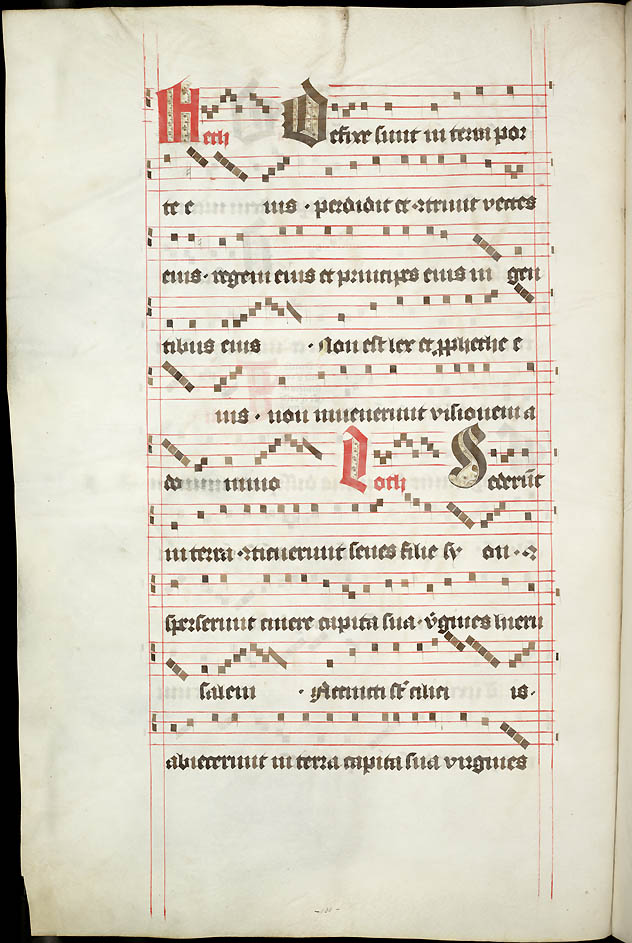 Heth Defixe sunt in terra por
te e ius · perdidit et ꝯtriuit vectes
eius · regem eius et principes eius in gen
tibus eius · Non est lex et ꝓphethe e
ius · non inuenerunt visionem a
do mino Ioth Sederūt
in terra ·ꝯticuerunt senes filie sy on ·ꝯ
sperserunt cinere capita sua · v̄gines hieru
salem · Accincti st̄ cilici is ·
abiecerunt in terra capita sua virgines